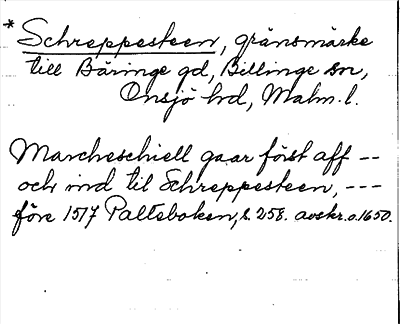 * Schreppesteen, gränsmärke
till Bäringe gd, Billinge sn,
Onsjö hd, Malm. l.
Marcheschiell gaar först aff --
och ind til Schreppesteen, ---
före 1517 Paltsboken, s. 258. avskr. o. 1650.